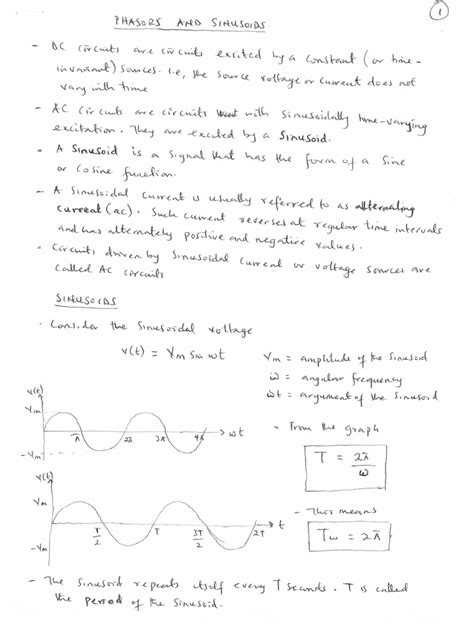 1
PHASORS AND SINUSOIDS.
- DC circuits are circuits excited by a constant (or time-
invariant) sources. i.e, the source voltage or current does not
vary with time
- AC circuits are circuits with sinusoidally time-varying
excitation. They are excited by a sinusoid.
- A Sinusoid is a signal that has the form of a sine
or cosine function.
- A sinusoidal current is usually referred to as alternating
current (ac). Such current reverses at regular time intervals
and has alternately positive and negative values.
- Circuits driven by sinusoidal current or voltage sources are
called AC circuits
SINUSOIDS
· Consider the sinusoidal voltage
v(t) = Vm Sin ωt
Vm = amplitude of the sinusoid
ω = angular frequency
ωt = argument of the sinusoid
v(t)
Vm
-Vm
π 2π 3π 4π ωt
- From the graph
T = 2π/ω
v(t)
Vm
-Vm
T/2 T 3T/2 2T t
- This means
Tω = 2π
- The sinusoid repeats itself every T seconds. T is called
the period of the sinusoid.